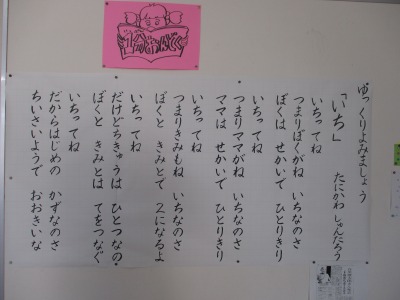 ゆっくりよみましょう
「いち」
たにかわ しゅんたろう
いちってね
つまりぼくがね いちなのさ
ぼくは せかいで ひとりきり
いちってね
つまりママがね いちなのさ
ママは せかいで ひとりきり
いちってね
つまりきみもね いちなのさ
ぼくと きみとで 2になるよ
いちってね
だけどちきゅうは ひとつなの
ぼくと きみとは てをつなぐ
いちってね
だからはじめの かずなのさ
ちいさいようで おおきいな